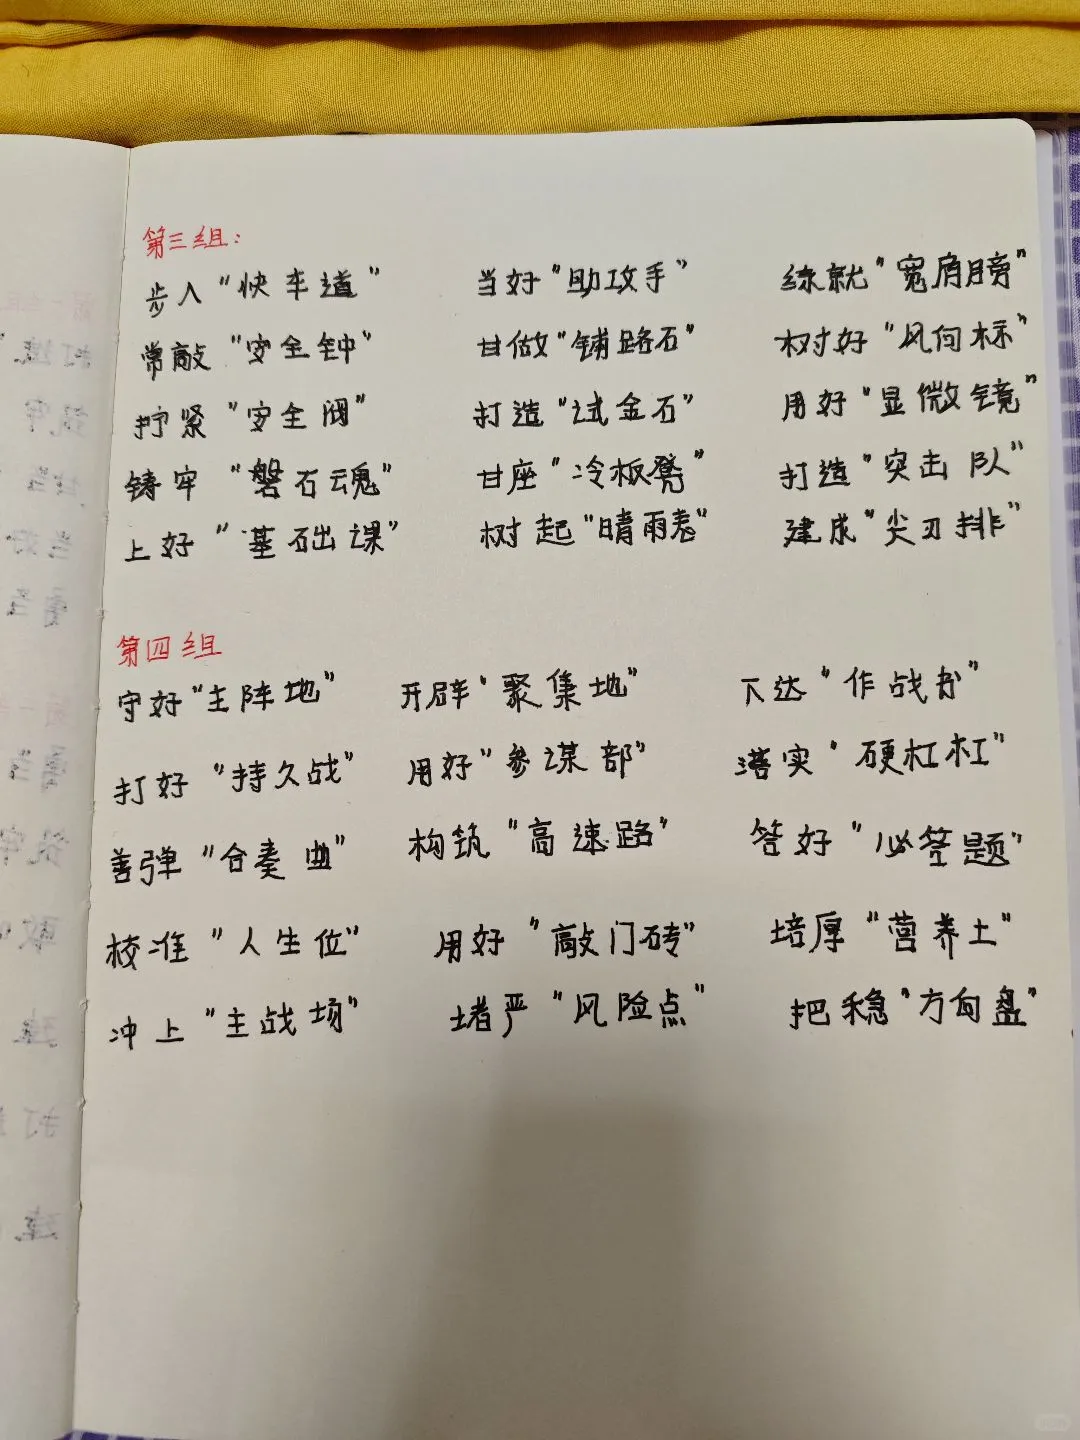 第三组:
步入“快车道” 当好“助攻手” 练就“宽肩膀”
常敲“安全钟” 甘做“铺路石” 树好“风向标”
拧紧“安全阀” 打造“试金石” 用好“显微镜”
铸牢“磐石魂” 甘座“冷板凳” 打造“突击队”
上好“基础课” 树起“晴雨表” 建成“尖刀排”
第四组
守好“主阵地” 开辟“聚集地” 下达“作战书”
打好“持久战” 用好“参谋部” 落实“硬杠杠”
善弹“合奏曲” 构筑“高速路” 答好“必答题”
校准“人生位” 用好“敲门砖” 培厚“营养土”
冲上“主战场” 堵严“风险点” 把稳“方向盘”